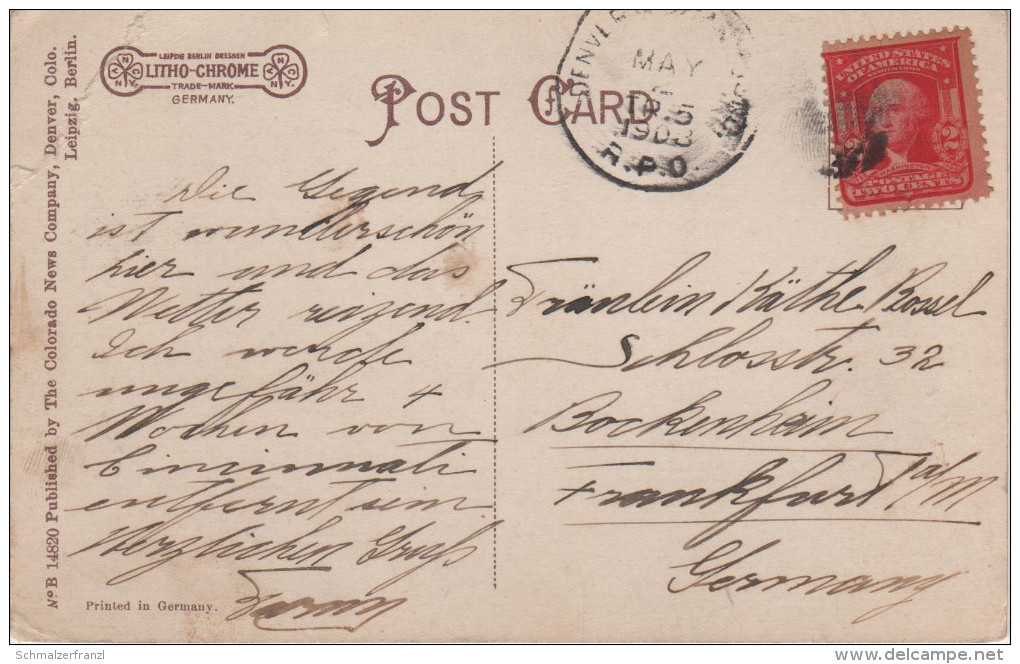 LEIPZIG BERLIN DRESDEN
LITHO-CHROME
TRADE-MARK
GERMANY.
POST CARD
MAY
R.P.O.
UNITED STATES
OF AMERICA
2 2
POSTAGE
TWO CENTS
Nº B 14820 Published by The Colorado News Company, Denver, Colo.
Leipzig. Berlin.
Die Gegend
ist wunderschön
hier und das
Wetter reizend.
Ich werde
ungefähr 4
Wochen von
Cincinnati
entfernt sein
Herzlichen Gruß
Fräulein Käthe Bossel
Schlosstr. 32
Bockenheim
Frankfurt a/M
Germany
Printed in Germany.
Schmalzerfranzl
delcampe.net